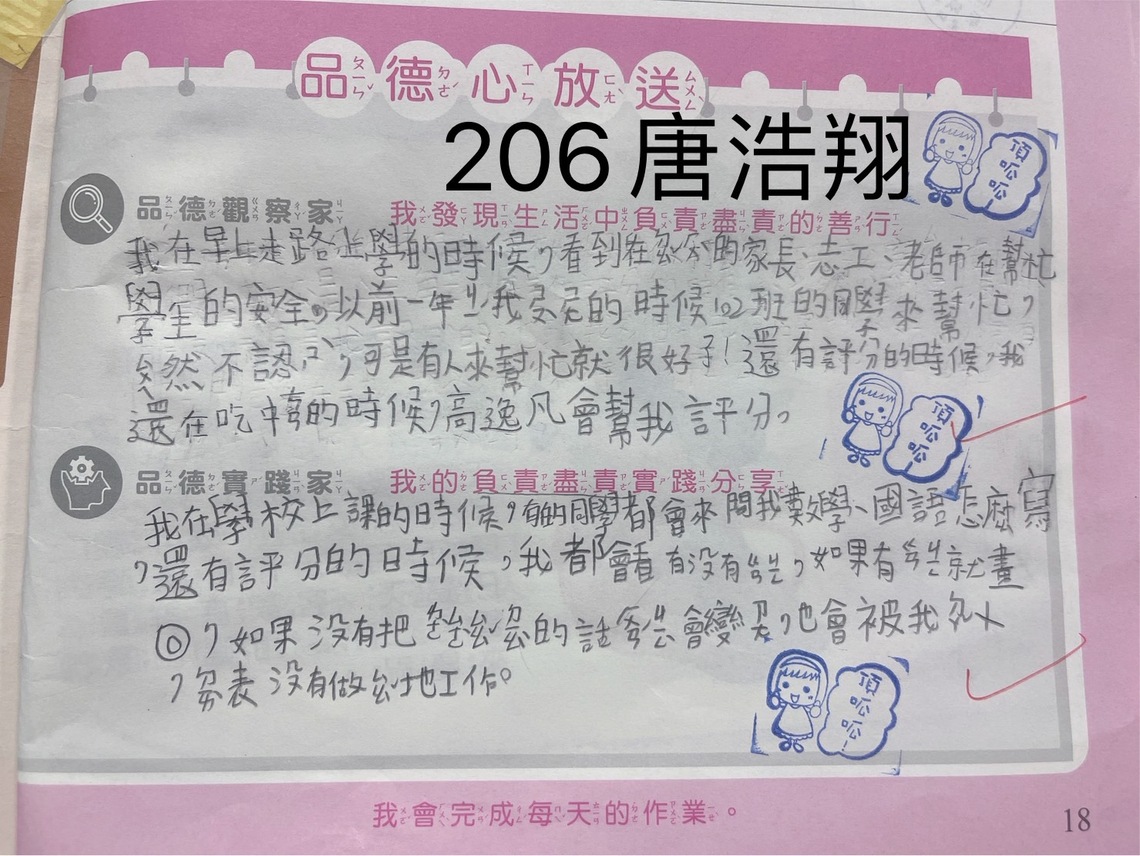 品德心放送
206唐浩翔
頂呱呱!
品德觀察家 我發現生活中負責盡責的善行
我在早上走路上學的時候,看到在ㄍㄠ的家長、志工、老師在幫忙
學生的安全。以前一年ㄐㄧ我ㄕㄡ的時候102班的同學來幫忙,
然不認,可是有人來幫忙就很好了!還有評分的時候,我
還在吃中的時候,高逸凡會幫我評分。
頂呱呱!
品德實踐家 我的負責盡責實踐分享
我在學校上課的時候,有的同學都會來問我數學、國語怎麼寫
,還有評分的時候,我都會看有沒有,如果有就畫
◎,如果沒有把的話會變,也會被我
,表沒有做地工作。
頂呱呱!
我會完成每天的作業。
18